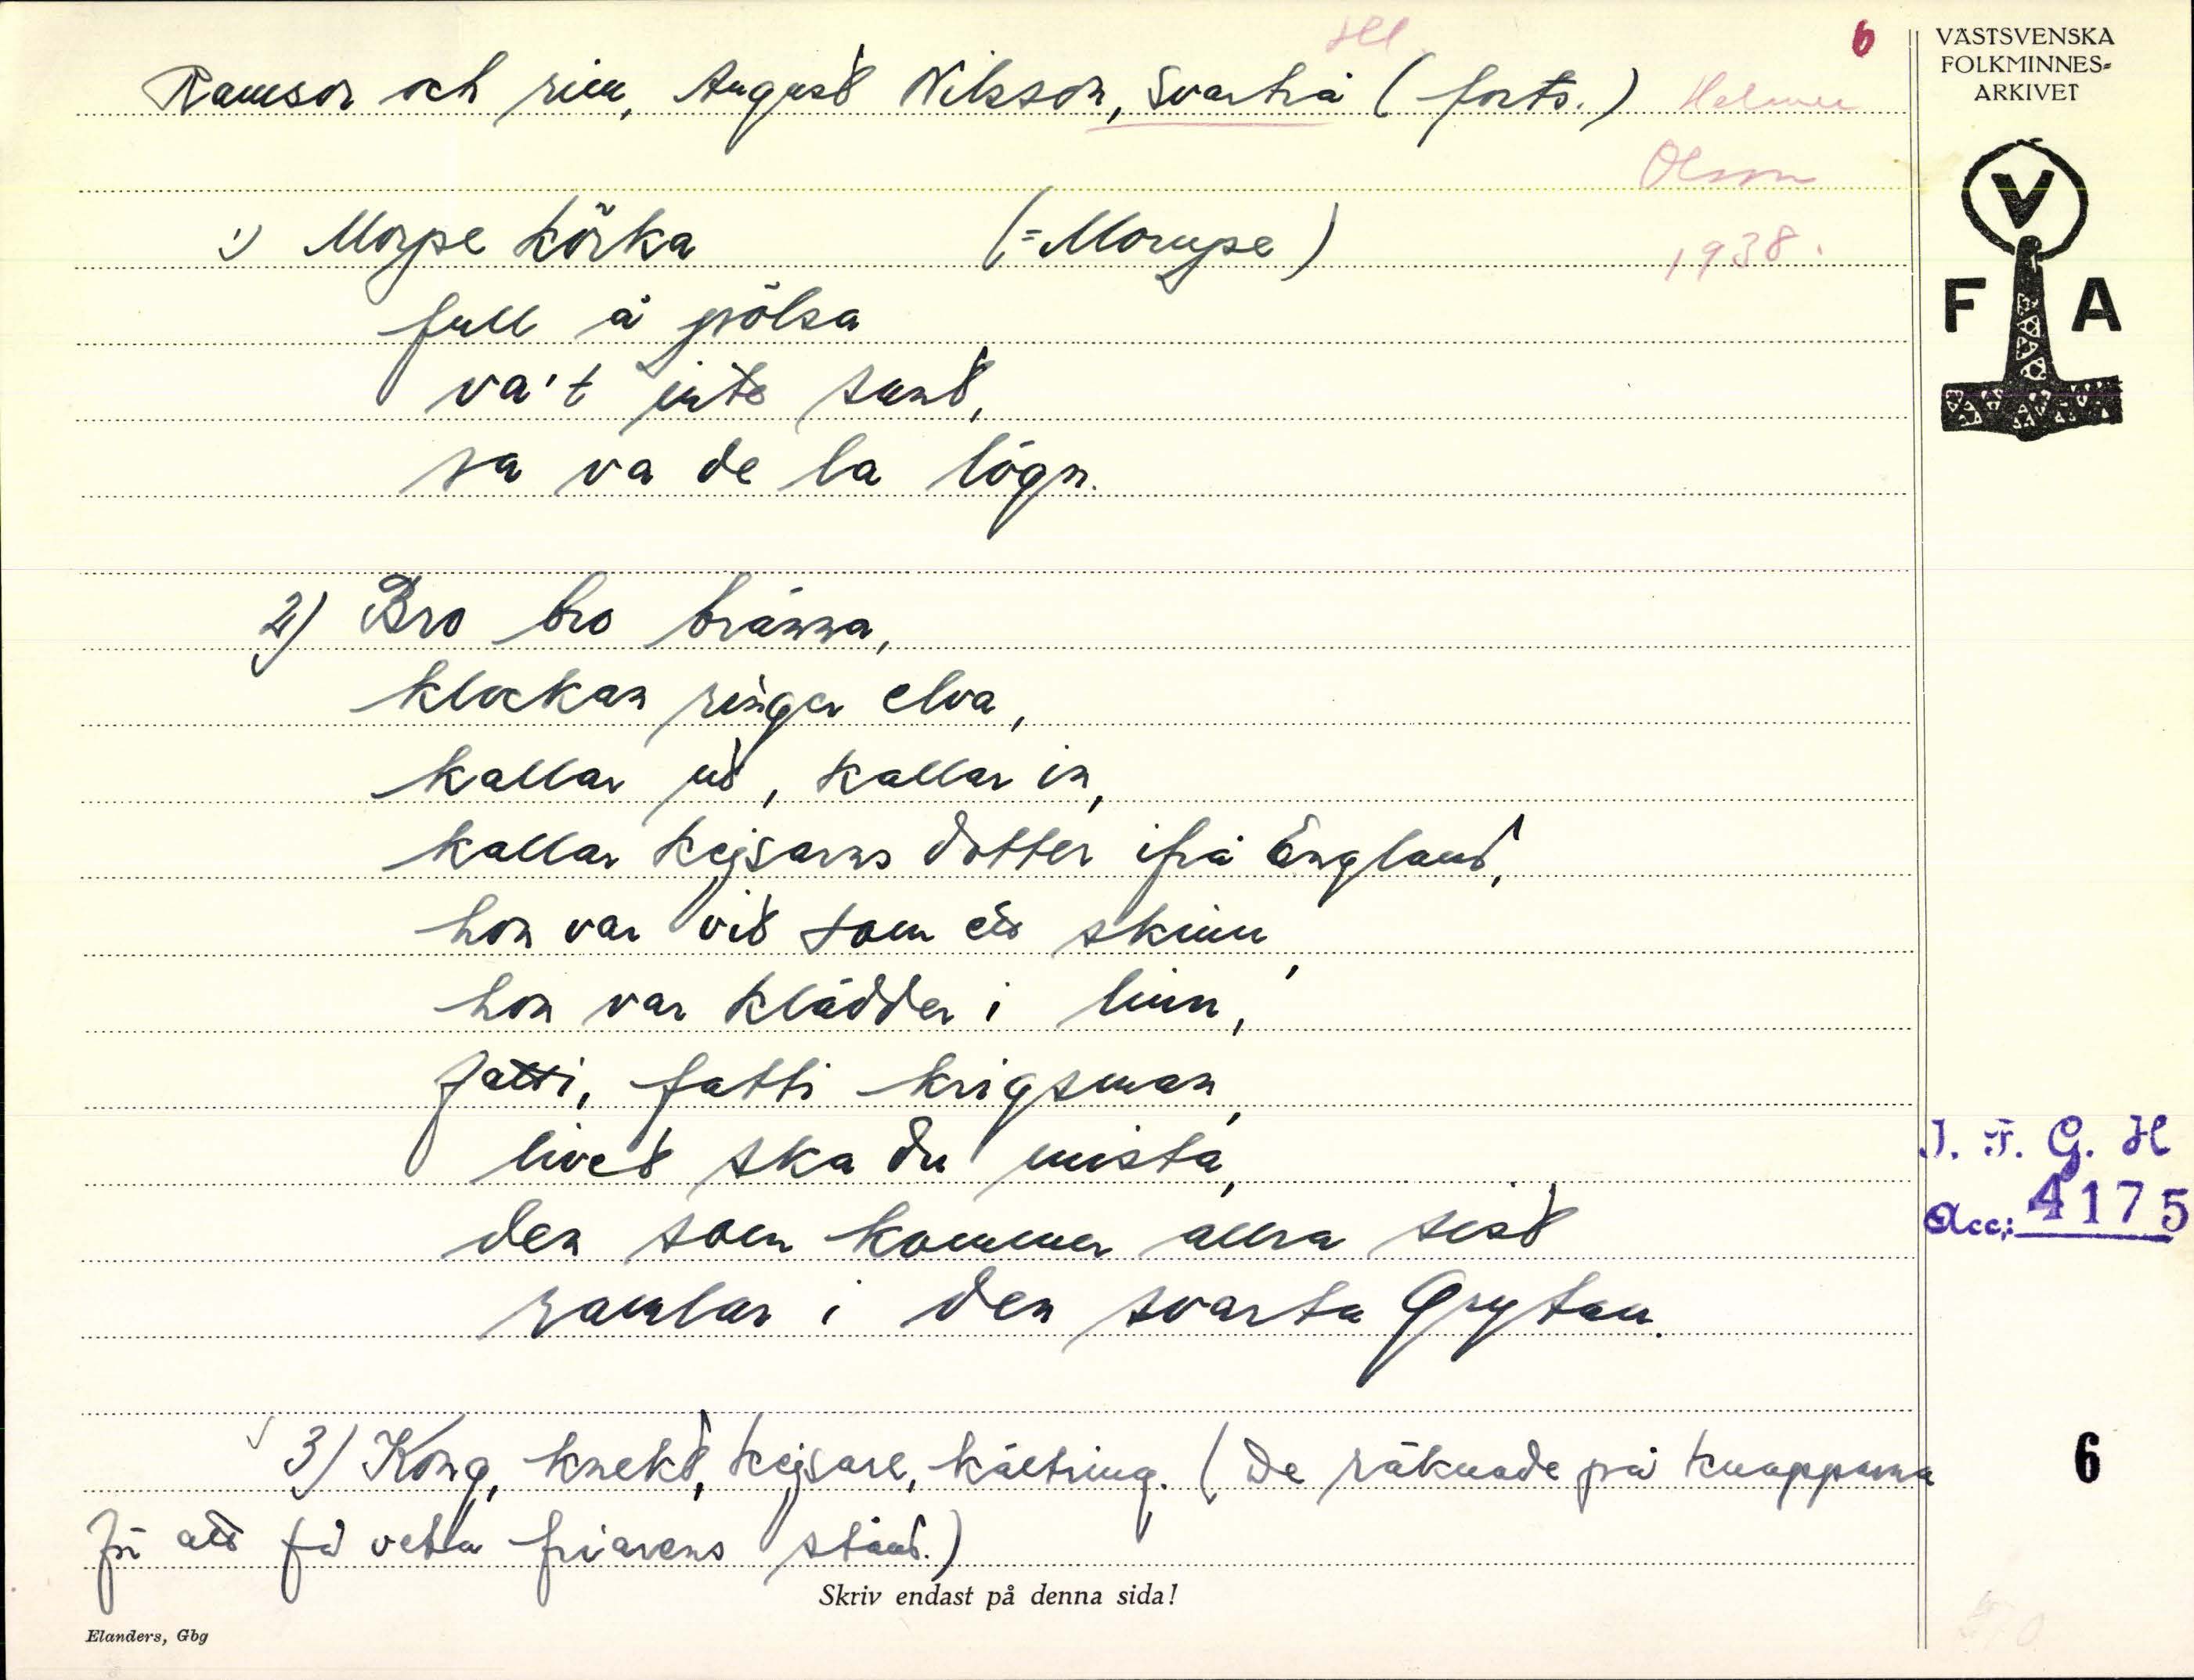 Hll.
6
Ramsor och rim, August Nilsson, Svartrå (forts.)
Helmer
Olsson
1938.
1) Morpe körka (=Morupe)
full å pölsa
va't inte sant,
sa va de la lögn.
2) Bro bro bränna,
klockan ringer elva,
kallar ut, kallar in,
kallar kejsarns dotter ifrå England,
hon var vit som ett skinn,
hon var klädder i linn,
fatti, fatti krigsman,
livet ska du mista,
den som kommer allra sist
ramlar i den svarta Grytan.
3) Kong, knekt, kejsare, kältring. (De räknade på knapparna
för att få veta friarens stånd.)
Skriv endast på denna sida!
Elanders, Gbg
VÄSTSVENSKA
FOLKMINNES-
ARKIVET
V
F A
I. F. G. H
Acc: 4175
6